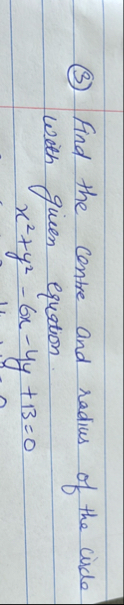 ③ Find the centre and radius of the circle
with given equation.
x²+y² - 6x - 4y + 13 = 0